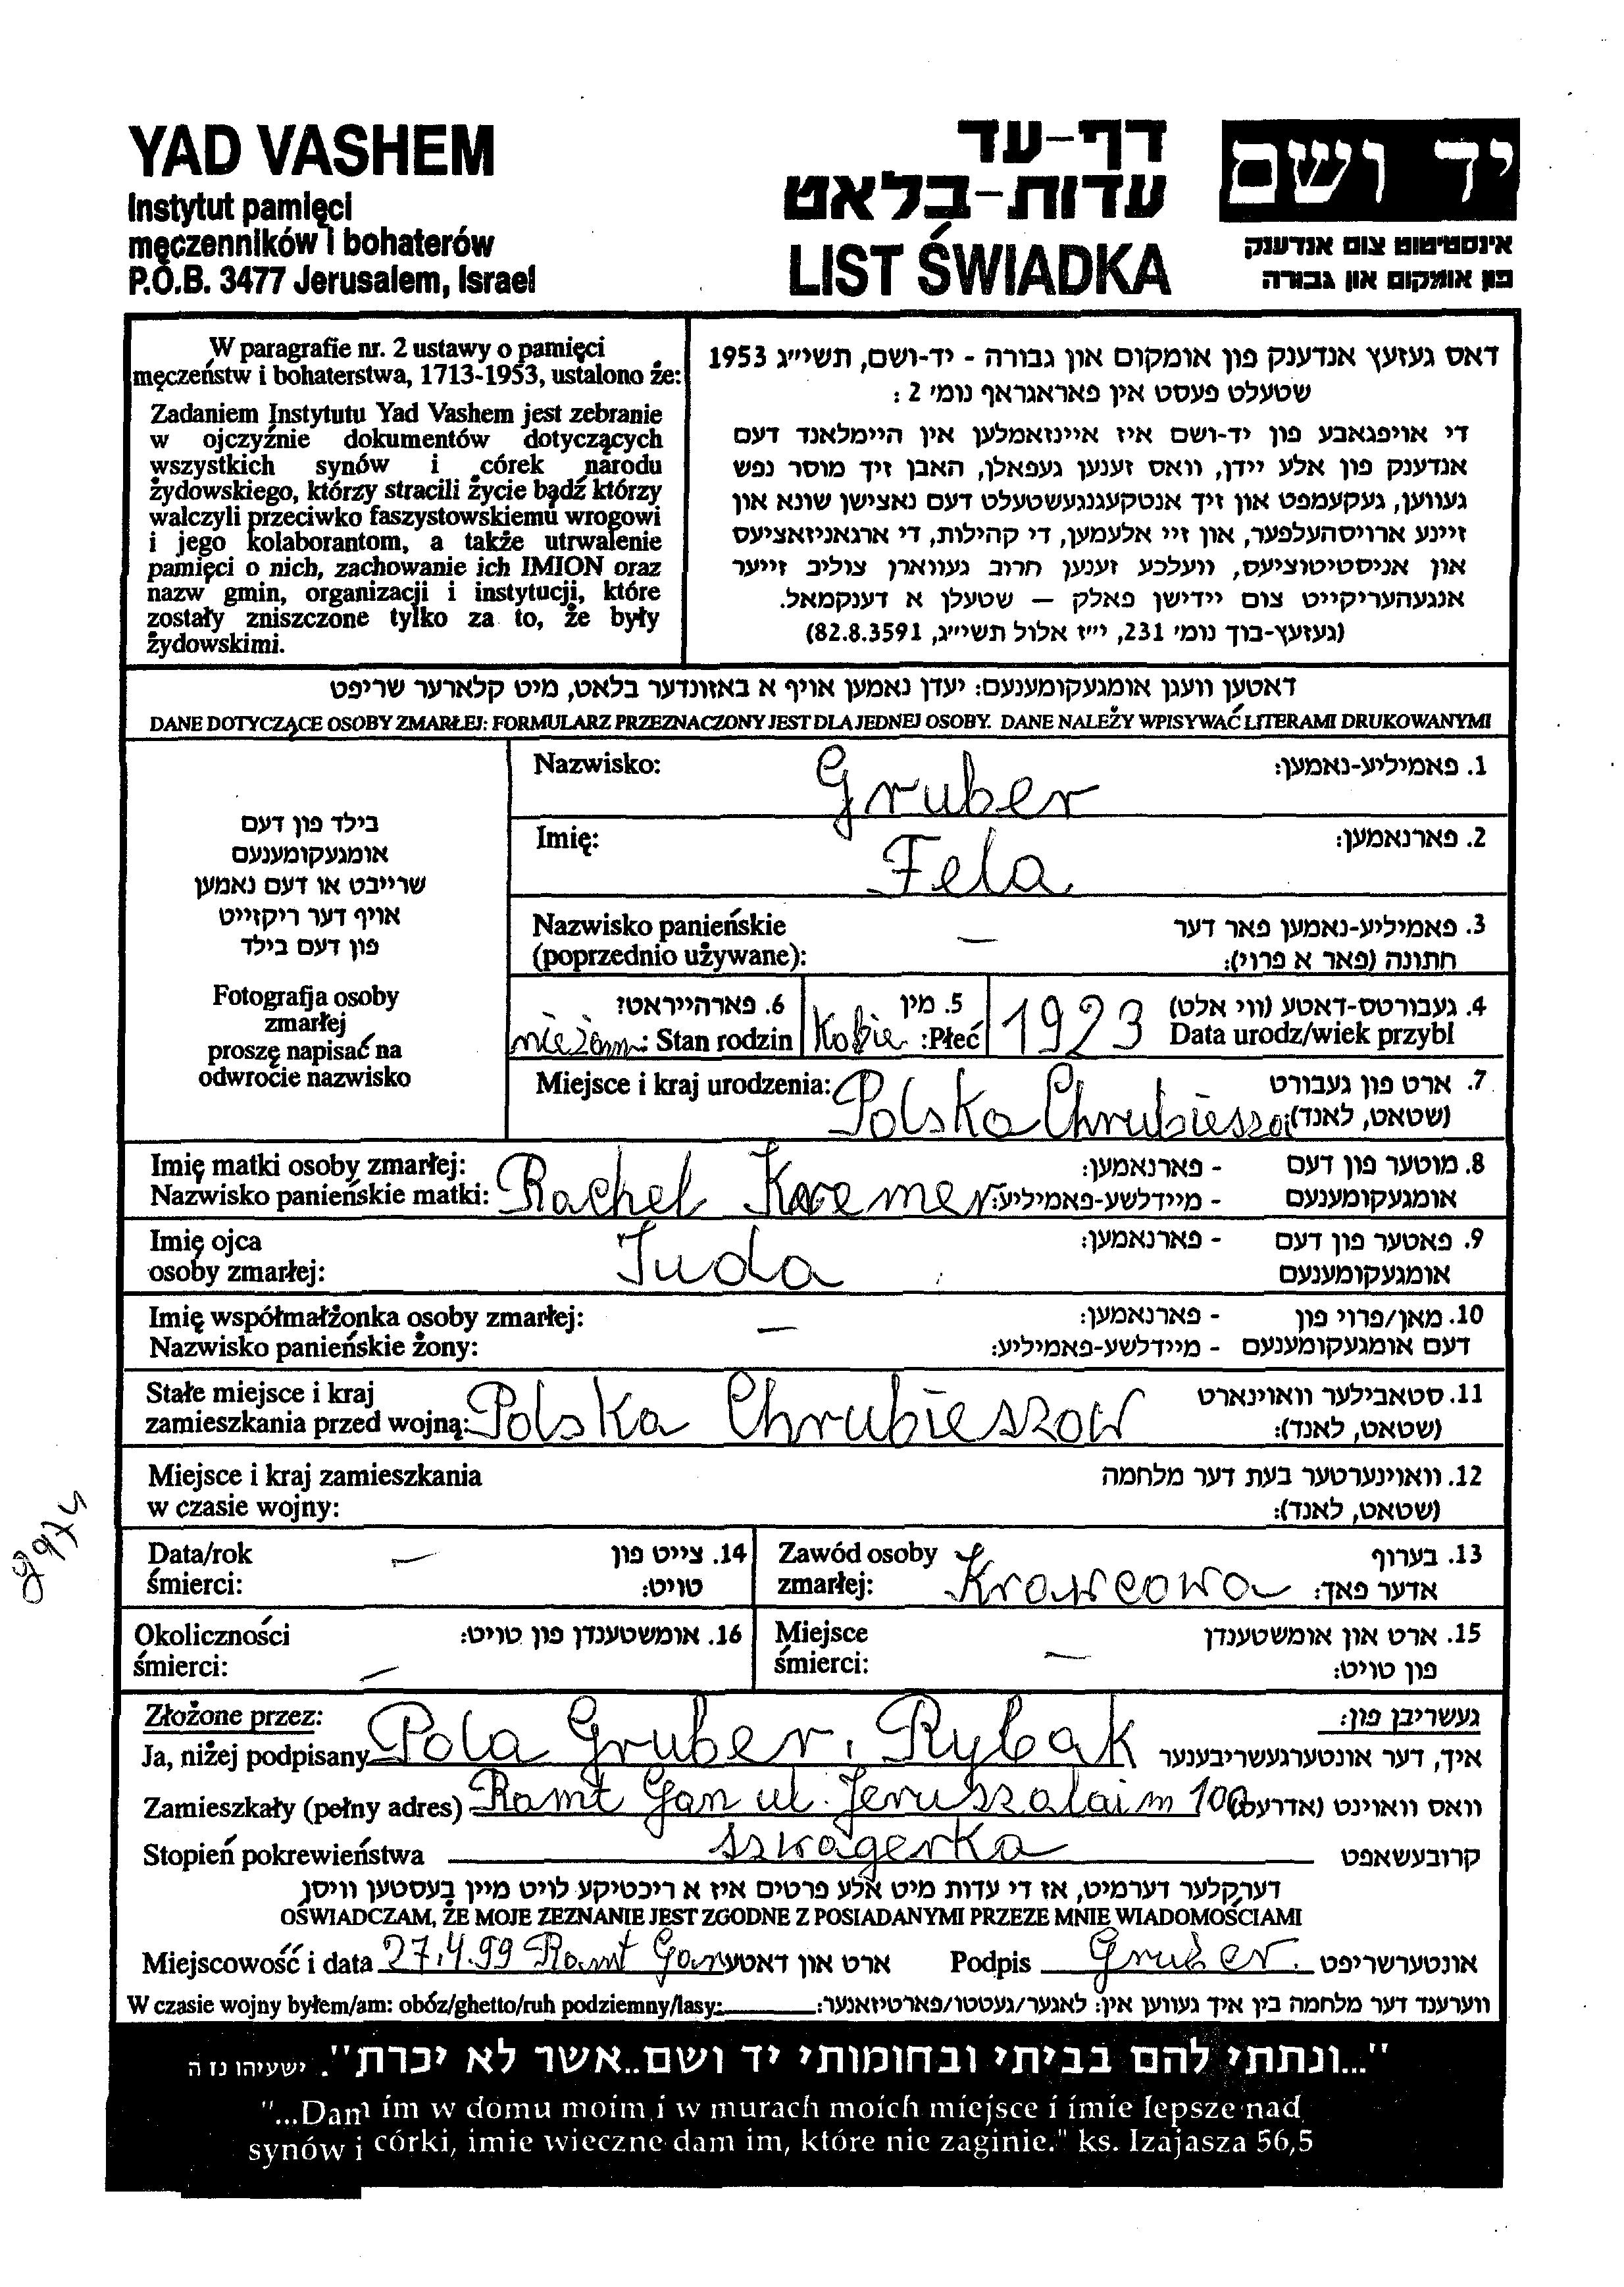 YAD VASHEM
Instytut pamięci
męczenników i bohaterów
P.O.B. 3477 Jerusalem, Israel
דף-עד
עדות-בלאט
LIST ŚWIADKA
יד ושם
אינסטיטוט צום אנדענק
פון אומקום און גבורה
W paragrafie nr. 2 ustawy o pamięci
męczeństw i bohaterstwa, 1713-1953, ustalono że:
Zadaniem Instytutu Yad Vashem jest zebranie
w ojczyźnie dokumentów dotyczących
wszystkich synów i córek narodu
żydowskiego, którzy stracili życie bądź którzy
walczyli przeciwko faszystowskiemu wrogowi
i jego kolaborantom, a także utrwalenie
pamięci o nich, zachowanie ich IMION oraz
nazw gmin, organizacji i instytucji, które
zostały zniszczone tylko za to, że były
żydowskimi.
דאס געזעץ אנדענק פון אומקום און גבורה - יד-ושם, תשי״ג 1953
שטעלט פעסט אין פאראגראף נומ׳ 2 :
די אויפגאבע פון יד-ושם איז איינזאמלען אין היימלאנד דעם
אנדענק פון אלע יידן, וואס זענען געפאלן, האבן זיך מוסר נפש
געווען, געקעמפט און זיך אנטקעגנגעשטעלט דעם נאצישן שונא און
זיינע ארויסהעלפער, און זיי אלעמען, די קהילות, די ארגאניזאציעס
און אניסטיטוציעס, וועלכע זענען חרוב געווארן צוליב זייער
אנגעהעריקייט צום יידישן פאלק – שטעלן א דענקמאל.
(געזעץ-בוך נומ׳ 231, י״ז אלול תשי״ג, 82.8.3591)
דאטען וועגן אומגעקומענעם: יעדן נאמען אויף א באזונדער בלאט, מיט קלארער שריפט
DANE DOTYCZĄCE OSOBY ZMARŁEJ: FORMULARZ PRZEZNACZONY JEST DLA JEDNEJ OSOBY. DANE NALEŻY WPISYWAĆ LITERAMI DRUKOWANYMI
בילד פון דעם
אומגעקומענעם
שרייבט או דעם נאמען
אויף דער ריקזייט
פון דעם בילד
Fotografja osoby
zmarłej
proszę napisać na
odwrocie nazwisko
Nazwisko: Gruber 1. פאמיליע-נאמען:
Imię: Fela 2. פארנאמען:
Nazwisko panieńskie — 3. פאמיליע-נאמען פאר דער
(poprzednio używane): חתונה (פאר א פרוי):
6. פארהייראט? 5. מין 4. געבורטס-דאטע (ווי אלט)
niezam: Stan rodzin Kobie :Płeć 1923 Data urodz/wiek przybl
Miejsce i kraj urodzenia: Polska Chrubieszo 7. ארט פון געבורט
(שטאט, לאנד):
Imię matki osoby zmarłej: - פארנאמען: 8. מוטער פון דעם
Nazwisko panieńskie matki: Rachel Kremer - מיידלשע-פאמיליע: אומגעקומענעם
Imię ojca Juda - פארנאמען: 9. פאטער פון דעם
osoby zmarłej: אומגעקומענעם
Imię współmałżonka osoby zmarłej: — - פארנאמען: 10. מאן/פרוי פון
Nazwisko panieńskie żony: - מיידלשע-פאמיליע: דעם אומגעקומענעם
Stałe miejsce i kraj 11. סטאבילער וואוינארט
zamieszkania przed wojną: Polska Chrubieszow (שטאט, לאנד):
Miejsce i kraj zamieszkania 12. וואוינערטער בעת דער מלחמה
w czasie wojny: (שטאט, לאנד):
Data/rok — 14. צייט פון
śmierci: טויט:
Zawód osoby 13. בערוף
zmarłej: Krawcowa אדער פאך:
Okoliczności 16. אומשטענדן פון טויט:
śmierci: —
Miejsce — 15. ארט און אומשטענדן
śmierci: פון טויט:
Złożone przez: געשריבן פון:
Ja, niżej podpisany Pola Gruber, Rybak איך, דער אונטערגעשריבענער
Zamieszkały (pełny adres) Ramt Gan ul. Jeruszalaim 100 וואס וואוינט (אדרעס)
Stopień pokrewieństwa szwagerka קרובעשאפט
דערקלער דערמיט, אז די עדות מיט אלע פרטים איז א ריכטיקע לויט מיין בעסטען וויסן
OŚWIADCZAM, ŻE MOJE ZEZNANIE JEST ZGODNE Z POSIADANYMI PRZEZE MNIE WIADOMOŚCIAMI
Miejscowość i data 27.4.99 Ramt Gan ארט און דאטע Podpis Gruber. אונטערשריפט
W czasie wojny byłem/am: obóz/ghetto/ruh podziemny/lasy: ווערענד דער מלחמה בין איך געווען אין: לאגער/געטטו/פארטיזאנער:
"...ונתתי להם בביתי ובחומותי יד ושם..אשר לא יכרת". ישעיהו נז ה
"...Dam im w domu moim i w murach moich miejsce i imie lepsze nad
synów i córki, imie wieczne dam im, które nie zaginie." ks. Izajasza 56,5